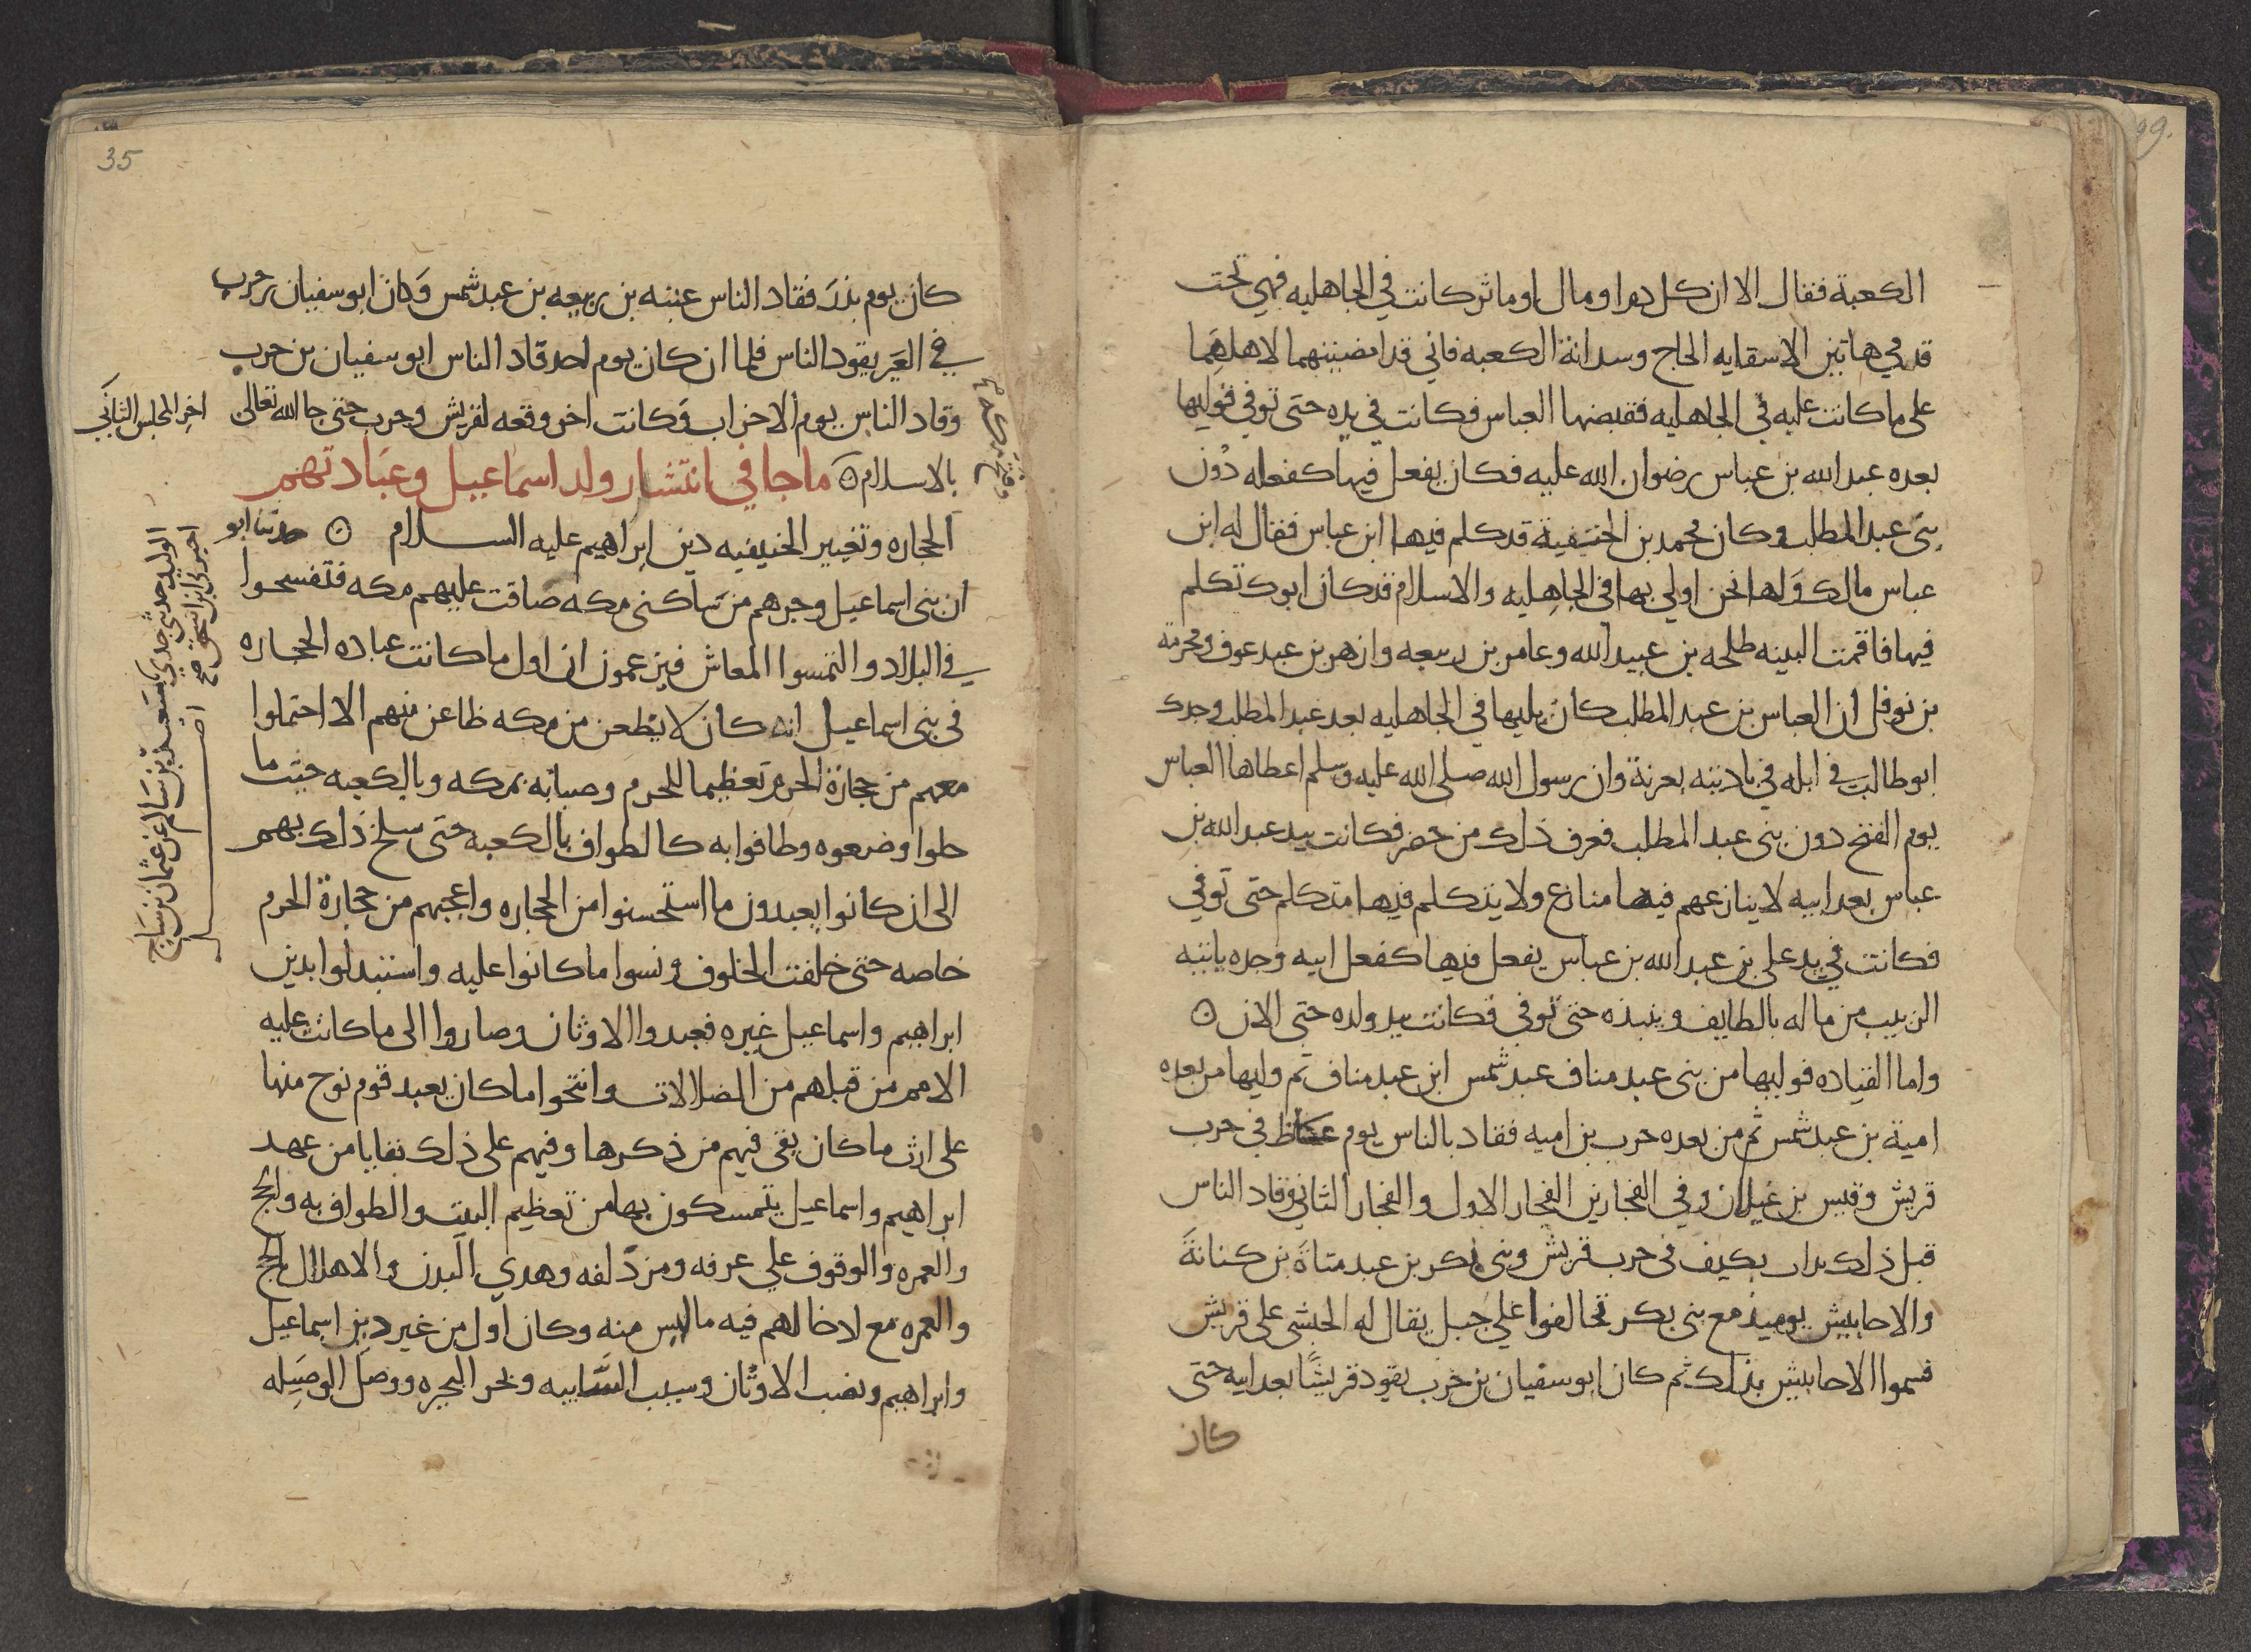 الكعبة فقال الا ان كل دم او مال او ماثر كانت في الجاهليه فهي تحت
قدمي هاتين الا سقايه الحاج وسدانة الكعبه فاني قد امضيتهما لاهلهما
على ما كانت عليه في الجاهليه فقبضها العباس فكانت في يده حتى توفي فوليها
بعده عبد الله بن عباس رضوان الله عليه فكان يفعل فيها كفعله دون
بني عبد المطلب وكان محمد بن الحنفية قد كلم فيها ابن عباس فقال له ابن
عباس مالك ولها نحن اولي بها في الجاهليه والاسلام قد كان ابوك تكلم
فيها فاقمت البينه طلحه بن عبيد الله وعامر بن ربيعه وازهر بن عبد عوف ومخرمة
بن نوفل ان العباس بن عبد المطلب كان يليها في الجاهليه بعد عبد المطلب وجدك
ابو طالب في ابله في باديته بعرنة وان رسول الله صلى الله عليه وسلم اعطاها العباس
يوم الفتح دون بني عبد المطلب فعرف ذلك من حضر فكانت بيد عبد الله بن
عباس بعد ابيه لا ينازعهم فيها منازع ولا يتكلم فيها متكلم حتى توفي
فكانت في يد علي بن عبد الله بن عباس يفعل فيها كفعل ابيه وجده ياتيه
الزبيب من ماله بالطايف وينبذه حتى توفي فكانت بيد ولده حتى الان ۞
واما القياده فوليها من بني عبد مناف عبد شمس ابن عبد مناف ثم وليها من بعده
امية بن عبد شمس ثم من بعده حرب بن اميه فقاد بالناس يوم عكاظ في حرب
قريش وقيس بن غيلان وفي الفجارين الفجار الاول والفجار الثاني وقاد الناس
قبل ذلك بذات بكيف في حرب قريش وبني بكر بن عبد مناة بن كنانة
والاحابيش يوميذ مع بني بكر تحالفوا علي جبل يقال له الحبشى على قريش
فسموا الاحابيش بذلك ثم كان ابو سفيان بن حرب يقود قريشا بعد ابيه حتى
كان
35
كان يوم بدر فقاد الناس عتبه بن ربيعه بن عبد شمس وكان ابو سفيان بن حرب
في العير يقود الناس فلما ان كان يوم احد قاد الناس ابو سفيان بن حرب
وقاد الناس يوم الاحزاب وكانت اخر وقعه لقريش وحرب حتى جا الله تعالى
اخر المجلس الثاني
بالاسلام ۞ ما جا في انتشار ولد اسماعيل وعبادتهم
الحجاره وتغيير الحنيفيه دين ابراهيم عليه السلام ۞ حدثنا ابو
الوليد حدثني جدي سعيد بن سالم عن عثمان بن ساج
اخبرني ابن اسحق صح
ان بني اسماعيل وجرهم من ساكني مكه ضاقت عليهم مكه فتفسحوا
في البلاد والتمسوا المعاش فيزعمون ان اول ما كانت عباده الحجاره
في بني اسماعيل انه كان لا يظعن من مكه ظاعن منهم الا احتملوا
معهم من حجارة الحرم تعظيما للحرم وصبابه بمكه وبالكعبه حيت ما
حلوا وضعوه وطافوا به كالطواف بالكعبه حتى سلخ ذلك بهم
الى ان كانوا يعبدون ما استحسنوا من الحجاره واعجبهم من حجارة الحرم
خاصه حتى خلفت الخلوف ونسوا ما كانوا عليه واستبدلوا بدين
ابراهيم واسماعيل غيره فعبدوا الاوثان وصاروا الى ما كانت عليه
الامم من قبلهم من الضلالات وانتحوا ما كان يعبد قوم نوح منها
على ارث ما كان بقي فيهم من ذكرها وفيهم على ذلك بقايا من عهد
ابراهيم واسماعيل يتمسكون بها من تعظيم البيت والطواف به والحج
والعمره والوقوف علي عرفه ومزدلفه وهدي البدن والاهلال بالحج
والعمره مع ادخالهم فيه ما ليس منه وكان اول من غير دين اسماعيل
وابراهيم ونصب الاوثان وسيب السايبه وبحر البحيره ووصل الوصيله